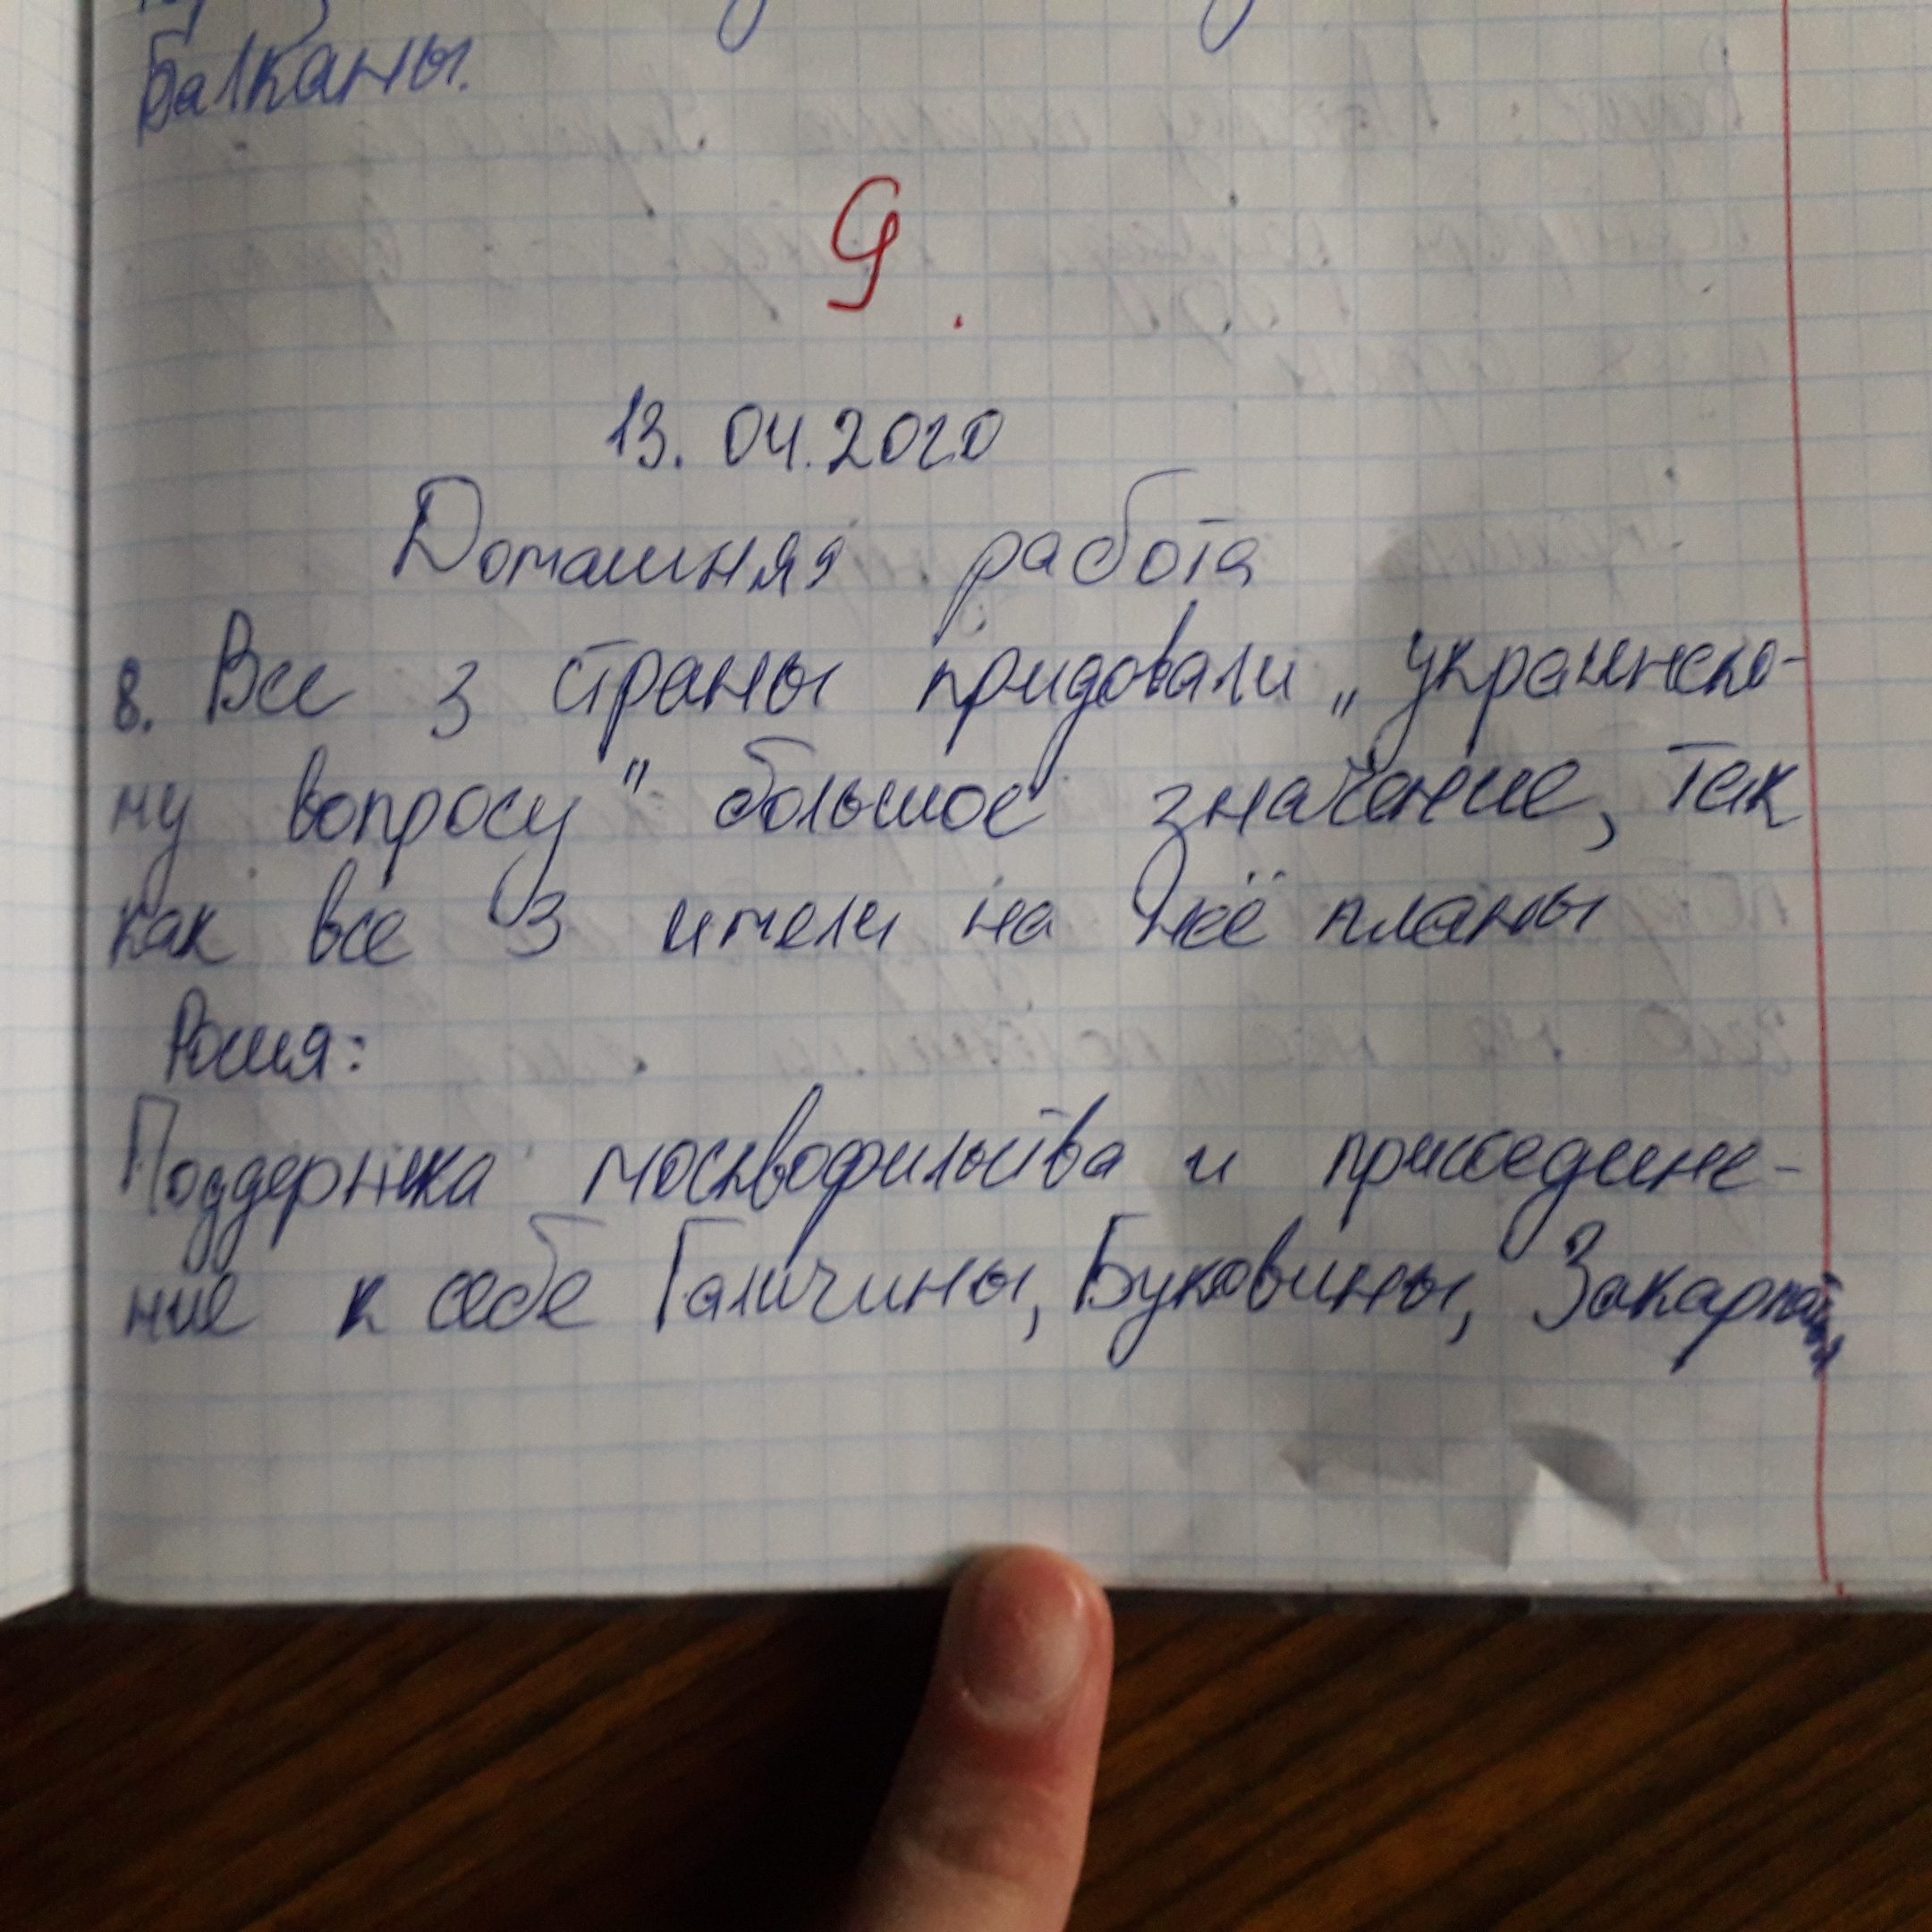 Балканы.
9
13.04.2020
Домашняя работа
8. Все 3 страны придовали „украинско-
му вопросу" большое значение, так
как все 3 имели на неё планы
Росия:
Поддержка москвофильства и присоедине-
ние к себе Галичины, Буковины,